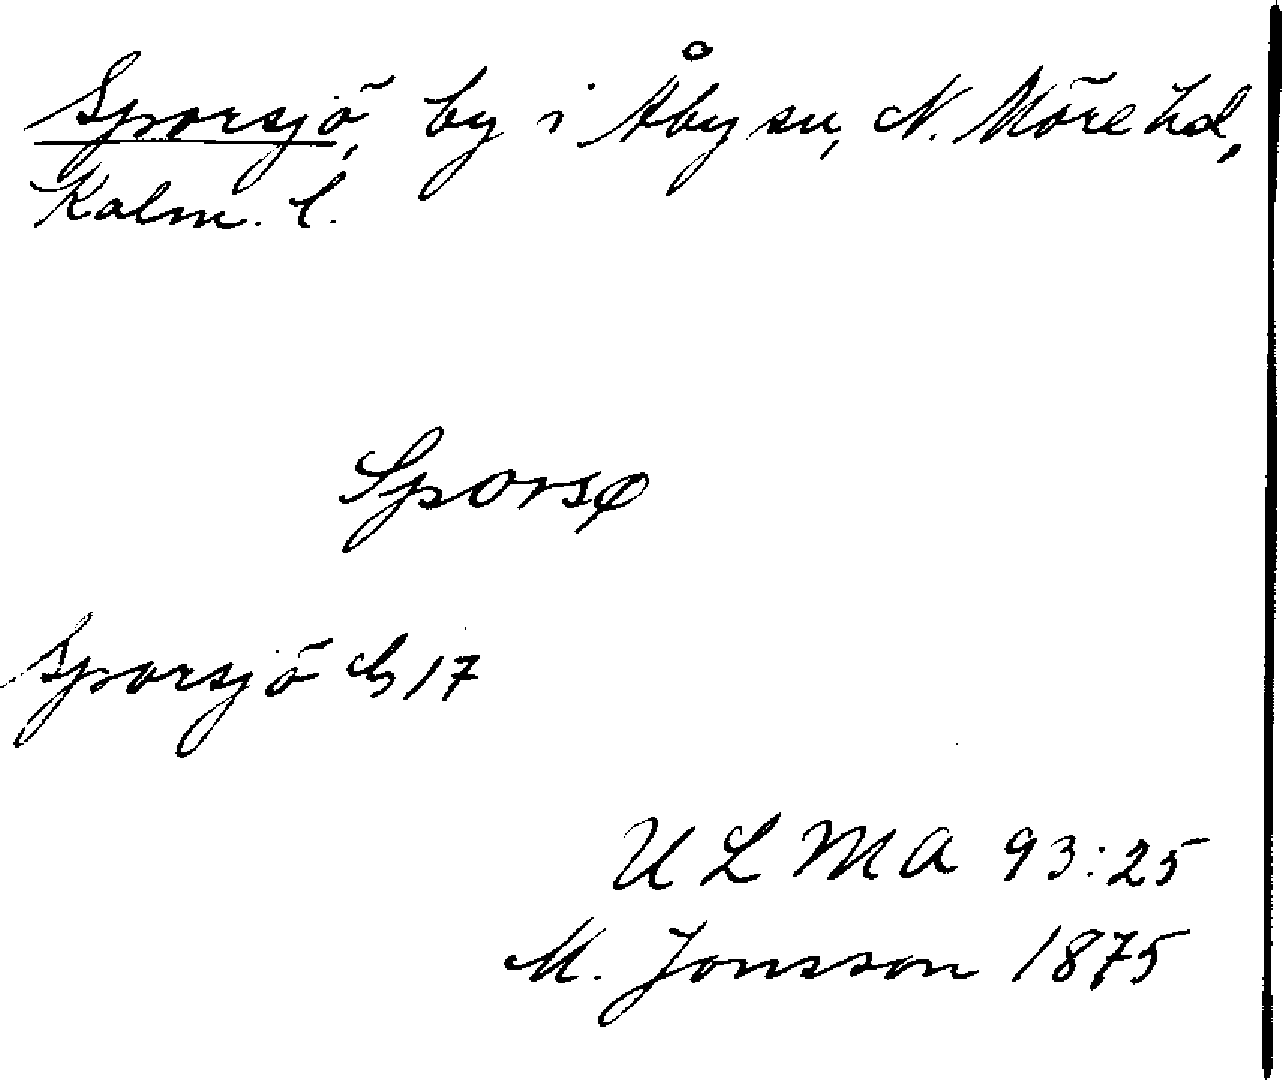 Sporsjö, by i Åby sn, N. Möre hd,
Kalm. l.
Sporsø
Sporsjö G 17
ULMA 93:25
M. Jonsson 1875